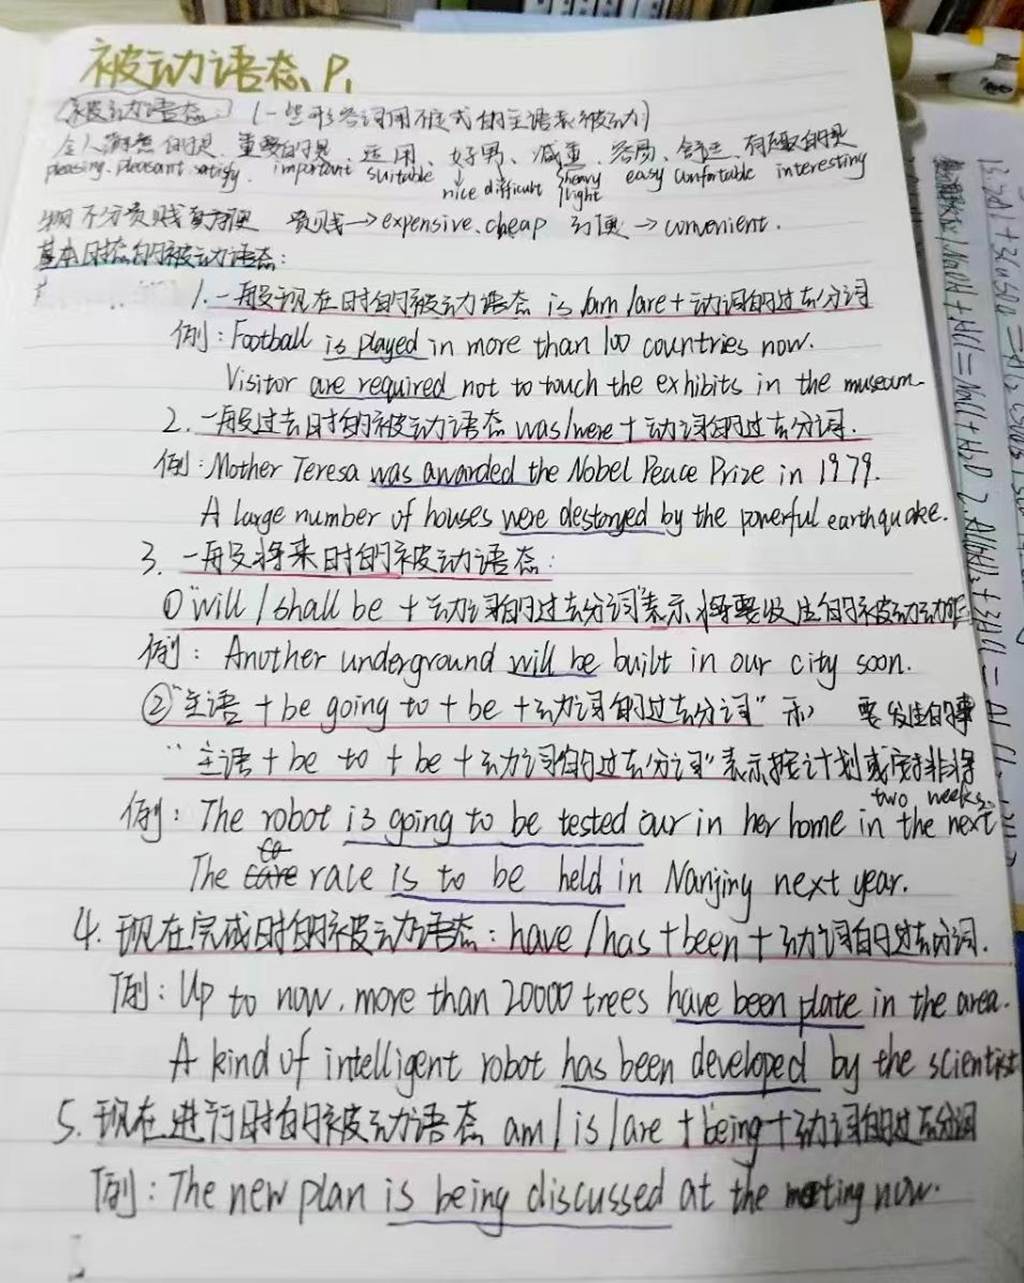 被动语态 P₁
被动语态: (一些形容词用不定式的主语表被动)
令人满意的是、重要的是、适用、好男、减重、容易、舒适、有趣的是
pleasing. pleasant. satisfy. important suitable nice difficult heavy/light easy comfortable interesting
不分贵贱 方便 贵贱→expensive、cheap 方便→convenient.
基本时态的被动语态:
1. 一般现在时的被动语态 is/am/are+动词的过去分词
例: Football is played in more than 100 countries now.
Visitor are required not to touch the exhibits in the museum.
2. 一般过去时的被动语态 was/were+动词的过去分词.
例: Mother Teresa was awarded the Nobel Peace Prize in 1979.
A large number of houses were destoryed by the powerful earthquake.
3. 一般将来时的被动语态:
①"will/shall be+动词的过去分词"表示将要发生的被动动作
例: Another underground will be built in our city soon.
②"主语+be going to+be+动词的过去分词" 示 要发生的事
"主语+be to+be+动词的过去分词"表示按计划或安排非将
two weeks.
例: The robot is going to be tested our in her home in the next
The race is to be held in Nanjing next year.
4. 现在完成时的被动语态: have/has+been+动词的过去分词.
例: Up to now, more than 20000 trees have been plate in the area.
A kind of intelligent robot has been developed by the scientist
5. 现在进行时的被动语态 am/is/are+being+动词的过去分词
例: The new plan is being discussed at the meeting now.